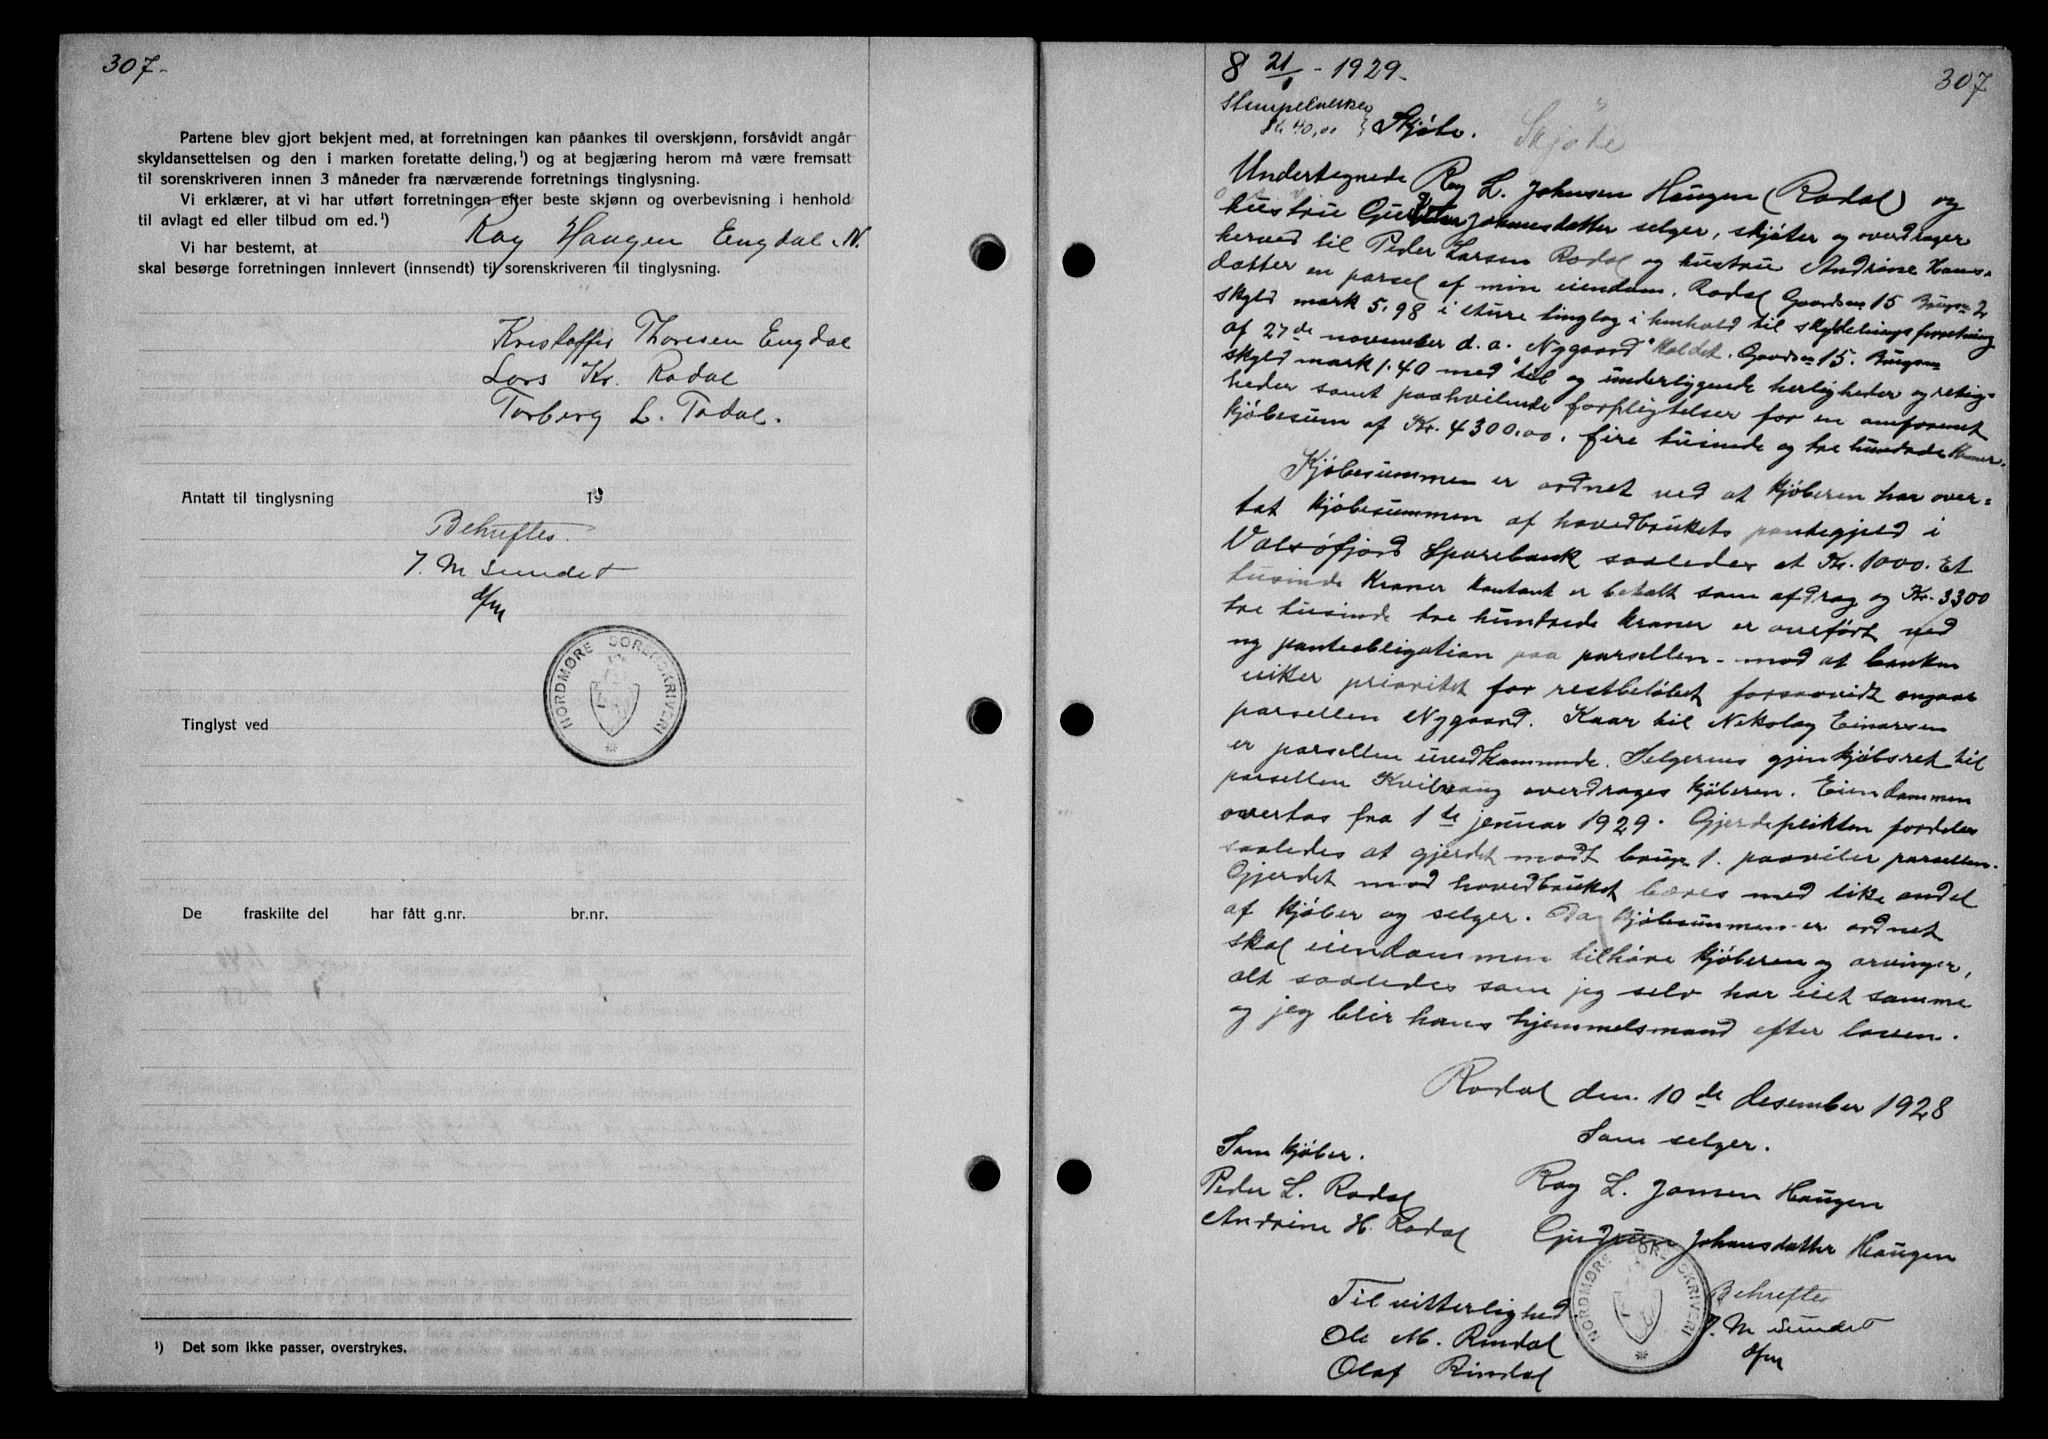 307.-
Partene blev gjort bekjent med, at forretningen kan påankes til overskjønn, forsåvidt angår
skyldansettelsen og den i marken foretatte deling,¹) og at begjæring herom må være fremsatt
til sorenskriveren innen 3 måneder fra nærværende forretnings tinglysning.
Vi erklærer, at vi har utført forretningen efter beste skjønn og overbevisning i henhold
til avlagt ed eller tilbud om ed.¹)
Vi har bestemt, at Roy Haugen Engdal N.
skal besørge forretningen innlevert (innsendt) til sorenskriveren til tinglysning.
Kristoffer Thoresen Engdal
Lars Kr. Rodal
Torberg L. Todal.
Antatt til tinglysning 19
Bekreftes.
J. M Sundet
NORDMØRE SORENSKRIVERI
Tinglyst ved
De fraskilte del har fått g.nr. br.nr.
¹) Det som ikke passer, overstrykes.
8 21/1 - 1929.
307
Stempelmerker
Kr. 40,00 } Skjøte.
Skjøte
Undertegnede Roy L. Johnsen Haugen (Rodal) og
hustru Gudrun Johansdatter selger, skjøter og overdrager
herved til Peder Larsen Rodal og hustru Andrine Hans-
datter en parsel af min eiendom, Rodal Gaardsnr 15 Brugsnr 2
skyld mark 5.98 i Sture tinglag i henhold til skylddelingsforretning
af 27de november d. a. Nygaard kaldet. Gaardsnr 15. Brugsnr
skyld mark 1.40 med til og underliggende herligheder og rettig-
heder samt paahvilende forpligtelser for en omforenet
kjøbesum af Kr. 4300.00. fire tusinde og tre hundrede Kroner.
Kjøbesummen er ordnet ved at kjøberen har over-
tat kjøbesummen af hovedbrukets pantegjeld i
Valsøfjord Sparebank saaledes at Kr. 1000. Et
tusinde Kroner kontant er betalt som afdrag og Kr. 3300
tre tusinde tre hundrede kroner er overført ved
ny panteobligation paa parsellen - mod at banken
viker prioritet for restbeløbet forsaavidt angaar
parsellen Nygaard. Kaar til Nikolay Einarsen
er parsellen uvedkommende. Selgerens gjenkjøbsret til
parsellen Kvilvang overdrages kjøberen. Eiendommen
overtas fra 1ste januar 1929. Gjerdeplikten fordeles
saaledes at gjerdet modt brugsnr 1. paaviler parsellen.
Gjerdet mod hovedbruket bæres med like andel
af kjøber og selger. Da kjøbesummen er ordnet
skal eiendommen tilhøre kjøberen og arvinger,
alt saaledes som jeg selv har eiet samme
og jeg blir hans hjemmelsmand efter loven.
Rodal den 10de desember 1928
Som selger.
Som kjøber.
Roy L. Jonsen Haugen
Peder L. Rodal
Andrine H. Rodal
Gudrun Johansdatter Haugen
NORDMØRE SORENSKRIVERI
Til vitterlighed
Ole M. Rindal
Olaf Rindal
Bekreftes
J. M Sundet